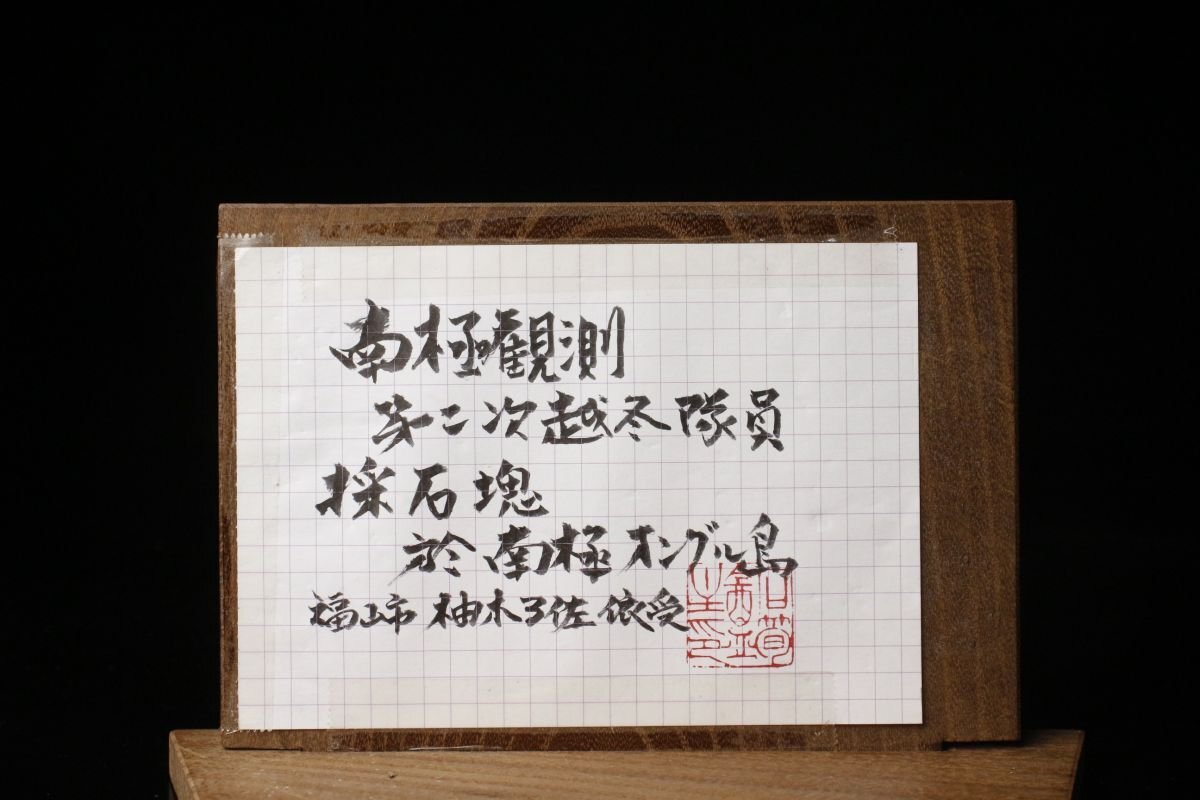 南極観測
第二次越冬隊員
採石塊
於南極オングル島
福山市 柚木了佐依受